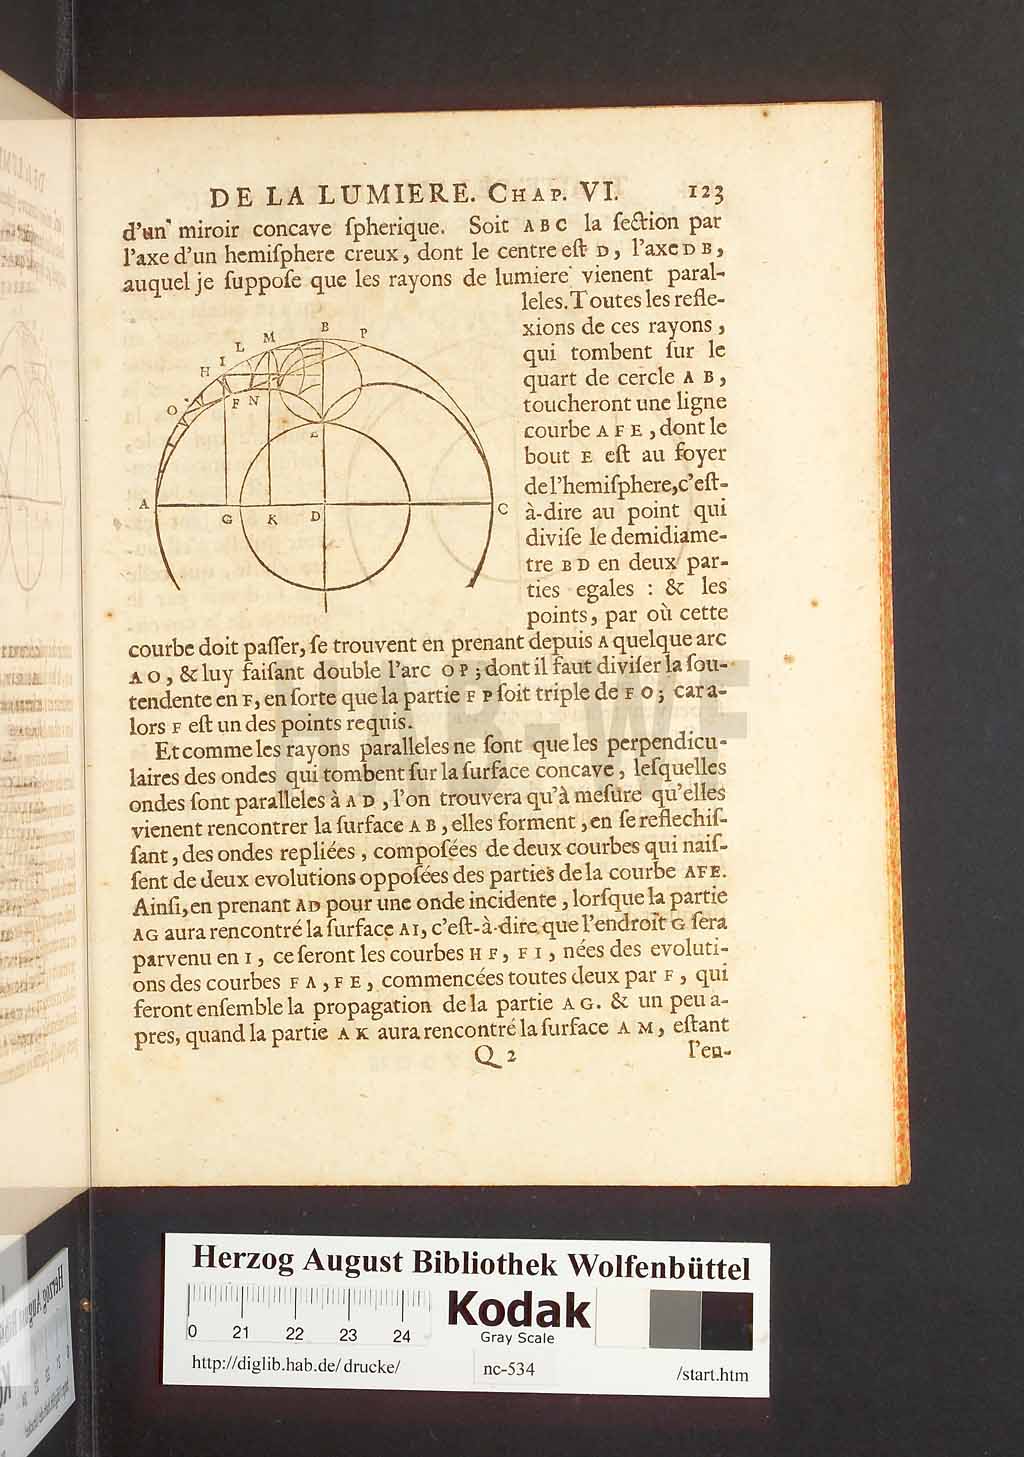 DE LA LUMIERE. CHAP. VI. 123
d'un miroir concave ſpherique. Soit A B C la ſection par
l'axe d'un hemiſphere creux, dont le centre eſt D, l'axe D B,
auquel je ſuppoſe que les rayons de lumiere vienent paral-
leles. Toutes les refle-
xions de ces rayons,
qui tombent ſur le
quart de cercle A B,
toucheront une ligne
courbe A F E, dont le
bout E eſt au foyer
de l'hemiſphere, c'eſt-
à-dire au point qui
diviſe le demidiame-
tre B D en deux par-
ties egales : & les
points, par où cette
B
P
M
L
I
H
O
F N
E
A
G K D
C
courbe doit paſſer, ſe trouvent en prenant depuis A quelque arc
A O, & luy faiſant double l'arc O P; dont il faut diviſer la ſou-
tendente en F, en ſorte que la partie F P ſoit triple de F O; car a-
lors F eſt un des points requis.
Et comme les rayons paralleles ne ſont que les perpendicu-
laires des ondes qui tombent ſur la ſurface concave, leſquelles
ondes ſont paralleles à A D, l'on trouvera qu'à meſure qu'elles
vienent rencontrer la ſurface A B, elles forment, en ſe reflechiſ-
ſant, des ondes repliées, compoſées de deux courbes qui naiſ-
ſent de deux evolutions oppoſées des parties de la courbe AFE.
Ainſi, en prenant AD pour une onde incidente, lorſque la partie
AG aura rencontré la ſurface AI, c'eſt-à-dire que l'endroit G ſera
parvenu en I, ce ſeront les courbes H F, F I, nées des evoluti-
ons des courbes F A, F E, commencées toutes deux par F, qui
feront enſemble la propagation de la partie A G. & un peu a-
pres, quand la partie A K aura rencontré la ſurface A M, eſtant
Q 2 l'en-
Herzog August Bibliothek Wolfenbüttel
0 21 22 23 24
Kodak
Gray Scale
http://diglib.hab.de/drucke/ nc-534 /start.htm